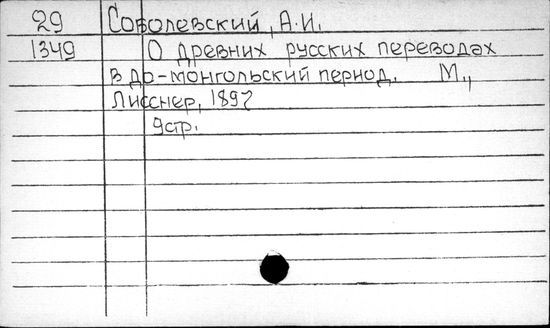 29 Соболевский, А.И.
1349 О древних русских переводах
в до-монгольский период. М.,
Лисснер, 1897
9стр.